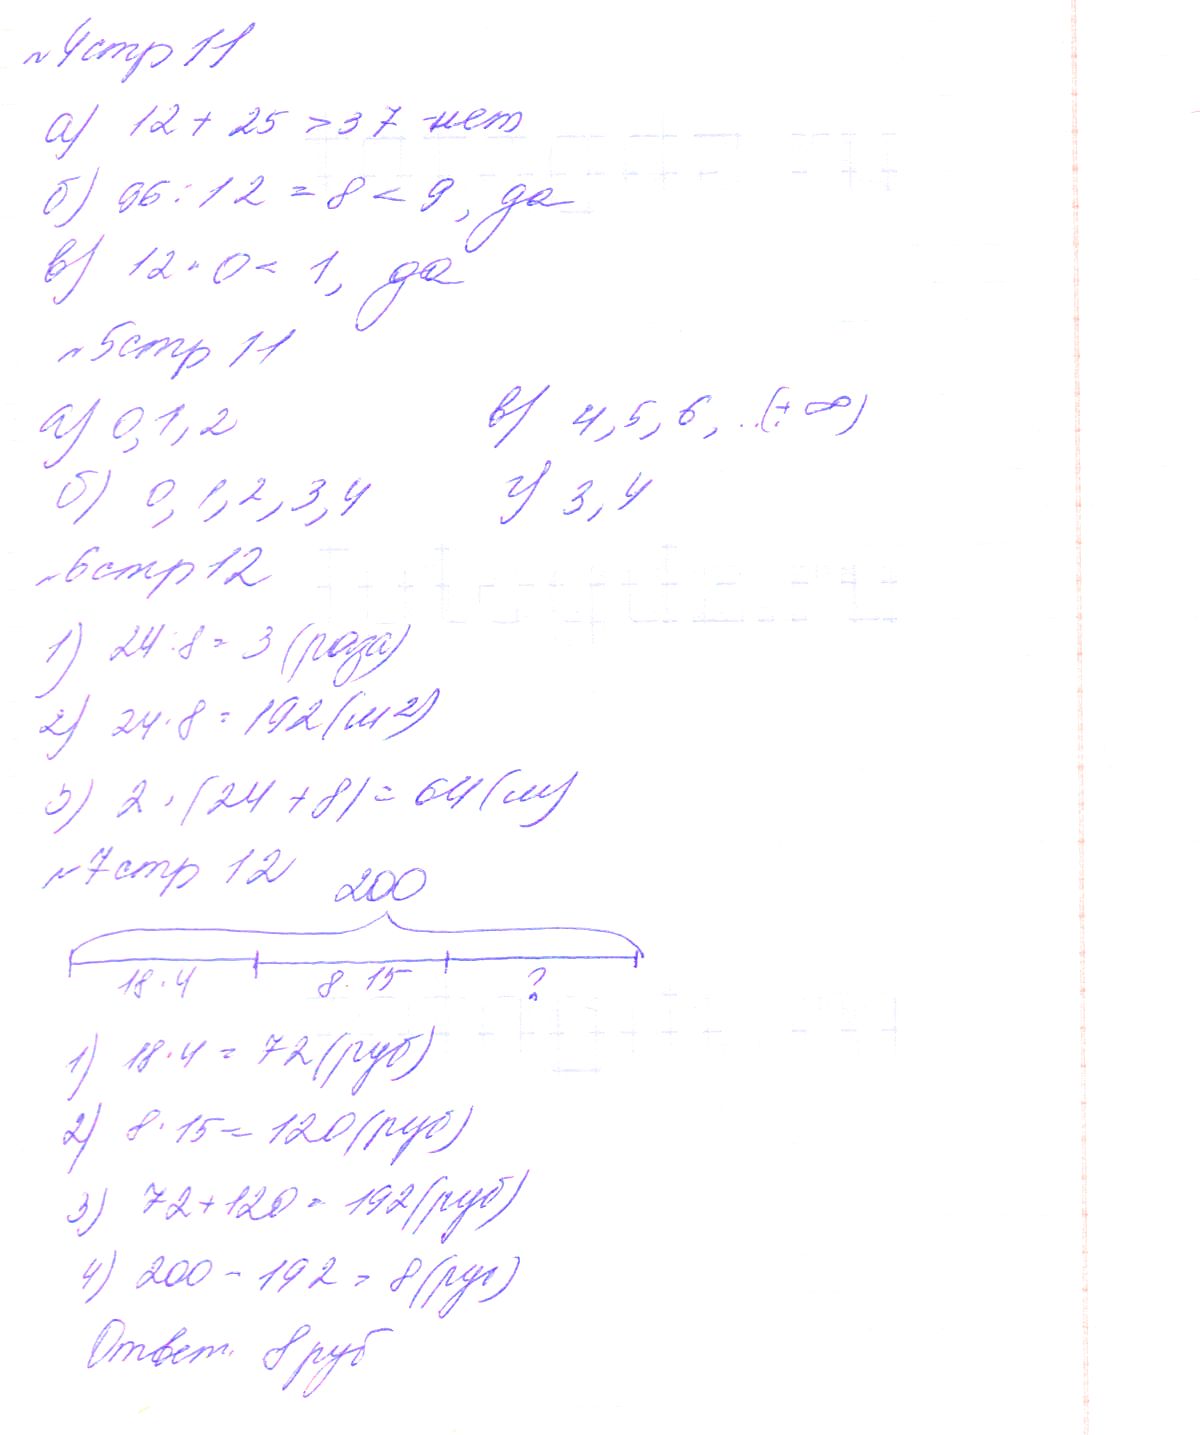 №4 стр 11
а) 12 + 25 > 37 -нет
б) 96 : 12 = 8 < 9, да
в) 12 · 0 < 1, да
№5 стр 11
а) 0, 1, 2
в) 4, 5, 6, ...(+ ∞)
б) 0, 1, 2, 3, 4
г) 3, 4
№6 стр 12
1) 24 : 8 = 3 (раза)
2) 24 · 8 = 192 (м²)
3) 2 · (24 + 8) = 64 (м)
№7 стр 12
200
18 · 4 8 · 15 ?
1) 18 · 4 = 72 (руб)
2) 8 · 15 = 120 (руб)
3) 72 + 120 = 192 (руб)
4) 200 - 192 = 8 (руб)
Ответ. 8 руб